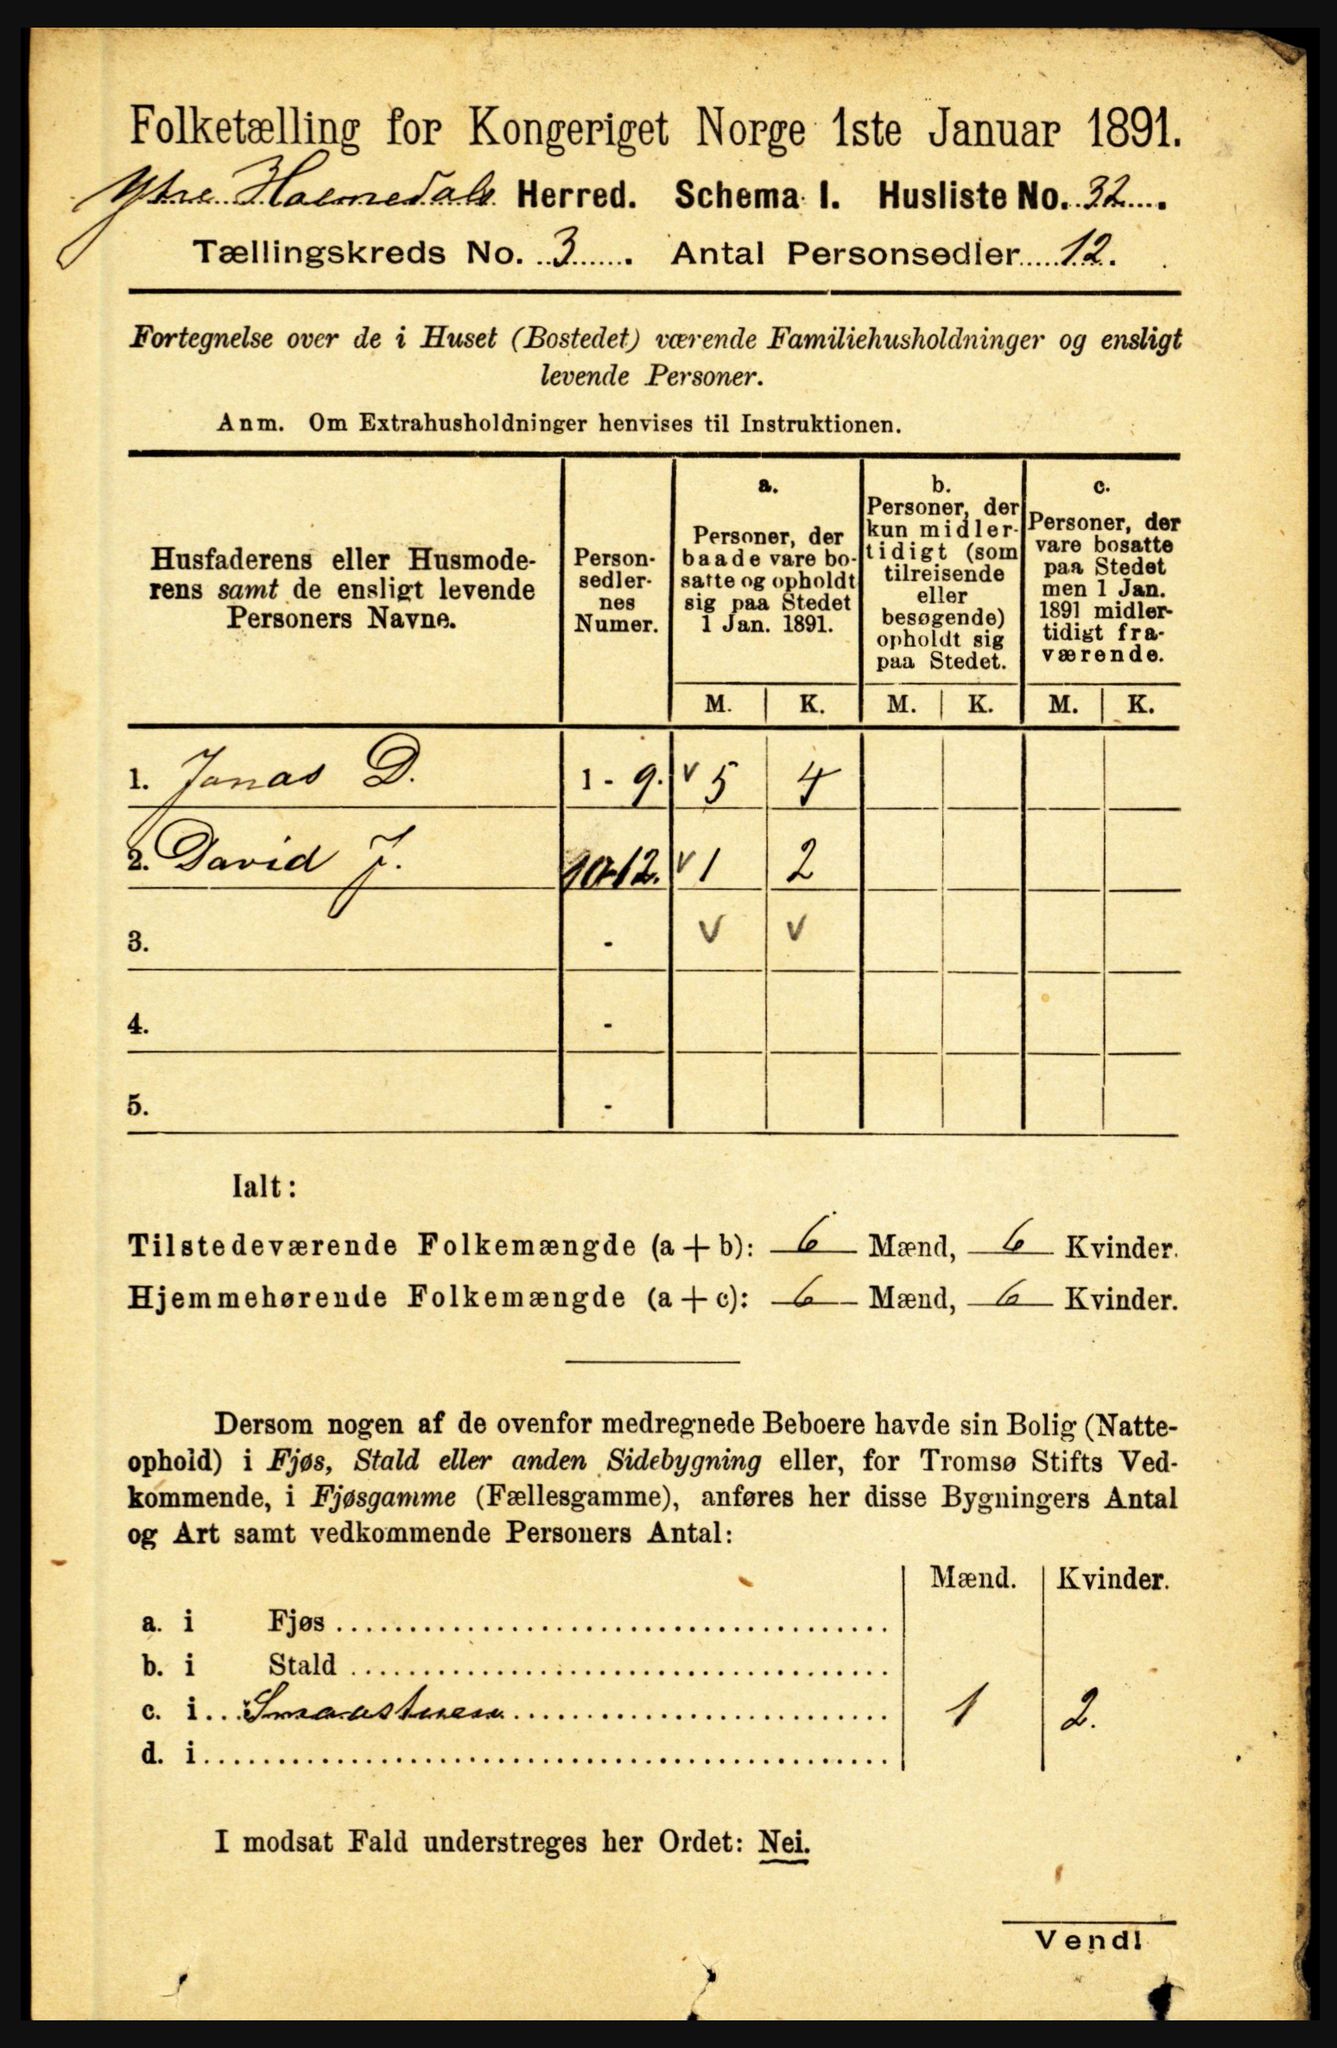 Folketælling for Kongeriget Norge 1ste Januar 1891.
Ytre Holmedals Herred. Schema I. Husliste No. 32.
Tællingskreds No. 3. Antal Personsedler 12.
Fortegnelse over de i Huset (Bostedet) værende Familiehusholdninger og ensligt
levende Personer.
Anm. Om Extrahusholdninger henvises til Instruktionen.
Husfaderens eller Husmode-
rens samt de ensligt levende
Personers Navne.
Person-
sedler-
nes
Numer.
a.
Personer, der
baade vare bo-
satte og opholdt
sig paa Stedet
1 Jan. 1891.
b.
Personer, der
kun midler-
tidigt (som
tilreisende
eller
besøgende)
opholdt sig
paa Stedet.
c.
Personer, der
vare bosatte
paa Stedet
men 1 Jan.
1891 midler-
tidigt fra-
værende.
M. K. M. K. M. K.
1. Jonas D. 1 - 9. v 5 4
2. David J. 10-12. v 1 2
3. - v v
4. -
5. -
Ialt:
Tilstedeværende Folkemængde (a + b): 6 Mænd, 6 Kvinder.
Hjemmehørende Folkemængde (a + c): 6 Mænd, 6 Kvinder.
Dersom nogen af de ovenfor medregnede Beboere havde sin Bolig (Natte-
ophold) i Fjøs, Stald eller anden Sidebygning eller, for Tromsø Stifts Ved-
kommende, i Fjøsgamme (Fællesgamme), anføres her disse Bygningers Antal
og Art samt vedkommende Personers Antal:
Mænd. Kvinder.
a. i Fjøs
b. i Stald
c. i Smaastuen 1 2.
d. i
I modsat Fald understreges her Ordet: Nei.
Vend!